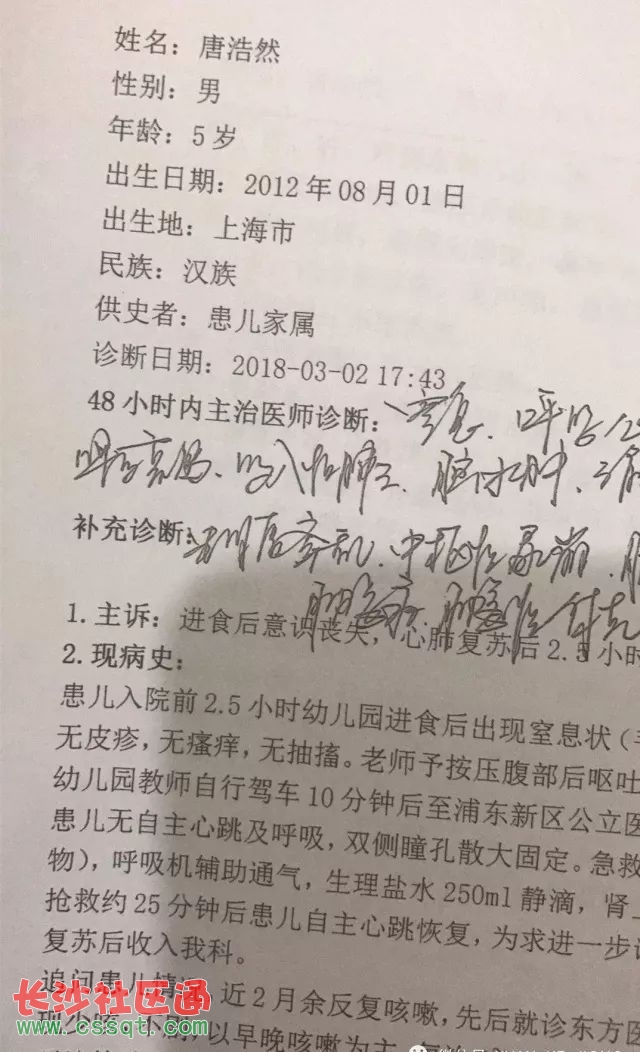 姓名：唐浩然
性别：男
年龄：5岁
出生日期：2012年08月01日
出生地：上海市
民族：汉族
供史者：患儿家属
诊断日期：2018-03-02 17:43
48小时内主治医师诊断：窒息、呼吸
吸入性肺炎、脑水肿、
补充诊断：紊乱、中枢性尿崩、
脑
1.主诉：进食后意识丧失，心肺复苏后2.5小时
2.现病史：
患儿入院前2.5小时幼儿园进食后出现窒息状（
无皮疹，无瘙痒，无抽搐。老师予按压腹部后呕吐
幼儿园教师自行驾车10分钟后至浦东新区公立医
患儿无自主心跳及呼吸，双侧瞳孔散大固定。急救
物），呼吸机辅助通气，生理盐水250ml静滴，肾上
抢救约25分钟后患儿自主心跳恢复，为求进一步
复苏后收入我科。
追问患儿情况，近2月余反复咳嗽，先后就诊东方医
以早晚咳嗽为主
长沙社区通
www.cssqt.com